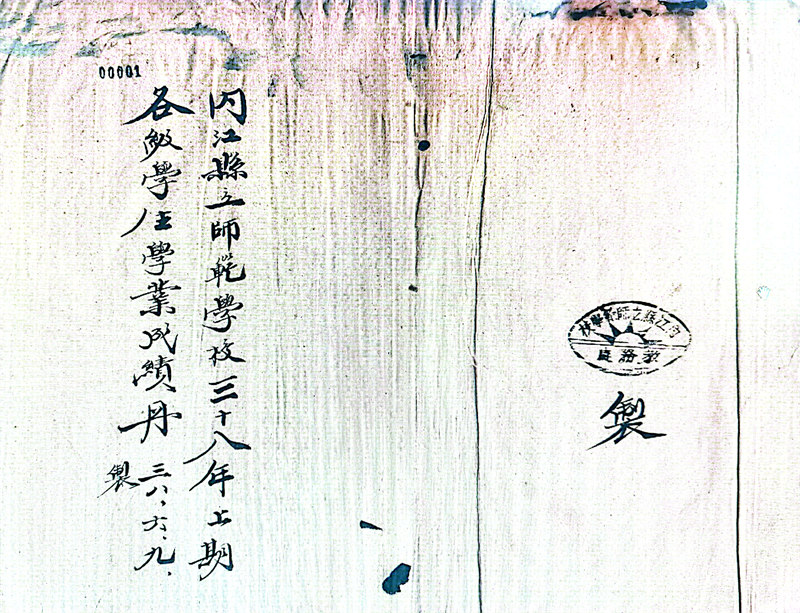 00001
內江縣立師範學校三十八年上期
各級學生學業成績册 三八、六、九、
製
內江縣立師範學校
教務處
製